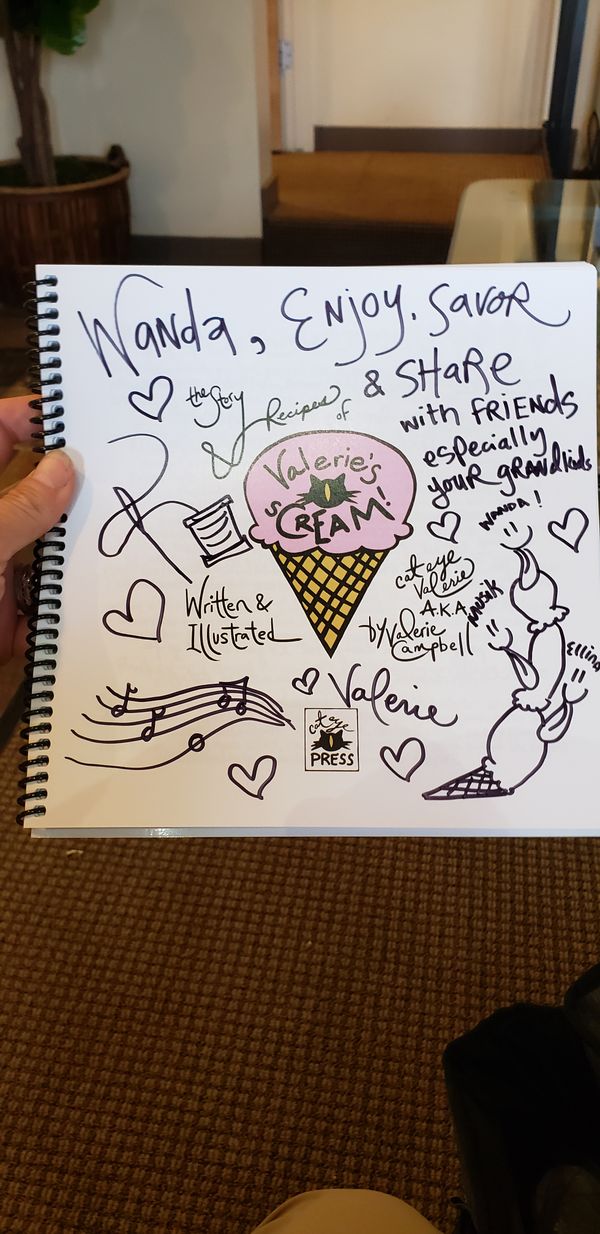 Wanda, Enjoy, Savor
& SHARE
with FRIENDS
especially
your GRANDkids
the Story
& Recipes of
Valerie's
sCREAM!
Written &
Illustrated
cat eye
Valerie
A.K.A.
by Valerie
Campbell
WANDA!
MUSIK
Valerie
cat eye
PRESS